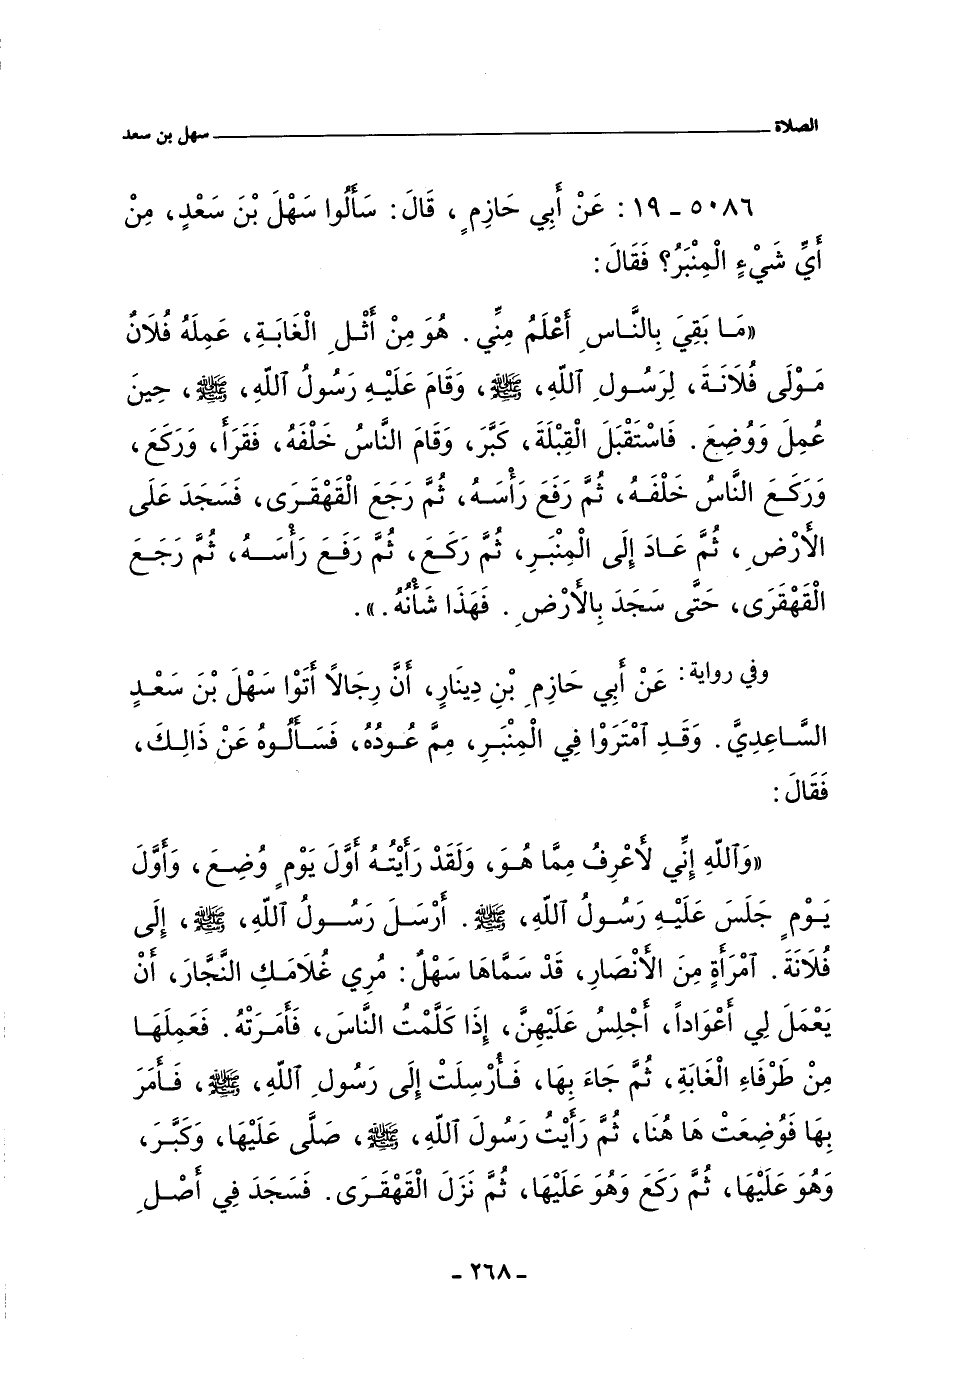 الصلاة سهل بن سعد
٥٠٨٦ - ١٩ : عَنْ أَبِي حَازِمٍ ، قَالَ : سَأَلُوا سَهْلَ بْنَ سَعْدٍ ، مِنْ
أَيِّ شَيْءٍ الْمِنْبَرُ؟ فَقَالَ :
«مَا بَقِيَ بِالنَّاسِ أَعْلَمُ مِنِّي . هُوَ مِنْ أَثْلِ الْغَابَةِ ، عَمِلَهُ فُلَانٌ
مَوْلَى فُلَانَةَ ، لِرَسُولِ ٱللّهِ ، ﷺ ، وَقَامَ عَلَيْهِ رَسُولُ ٱللّهِ ، ﷺ ، حِينَ
عُمِلَ وَوُضِعَ . فَاسْتَقْبَلَ الْقِبْلَةَ ، كَبَّرَ ، وَقَامَ النَّاسُ خَلْفَهُ ، فَقَرَأَ ، وَرَكَعَ ،
وَرَكَعَ النَّاسُ خَلْفَهُ ، ثُمَّ رَفَعَ رَأْسَهُ ، ثُمَّ رَجَعَ الْقَهْقَرَى ، فَسَجَدَ عَلَى
الأَرْضِ ، ثُمَّ عَادَ إِلَى الْمِنْبَرِ ، ثُمَّ رَكَعَ ، ثُمَّ رَفَعَ رَأْسَهُ ، ثُمَّ رَجَعَ
الْقَهْقَرَى ، حَتَّى سَجَدَ بِالأَرْضِ . فَهَذَا شَأْنُهُ .» .
وفي رواية : عَنْ أَبِي حَازِمِ بْنِ دِينَارٍ ، أَنَّ رِجَالاً أَتَوْا سَهْلَ بْنَ سَعْدٍ
السَّاعِدِيَّ . وَقَدِ ٱمْتَرَوْا فِي الْمِنْبَرِ ، مِمَّ عُودُهُ ، فَسَأَلُوهُ عَنْ ذَالِكَ ،
فَقَالَ :
«وَٱللّهِ إِنِّي لَأَعْرِفُ مِمَّا هُوَ ، وَلَقَدْ رَأَيْتُهُ أَوَّلَ يَوْمٍ وُضِعَ ، وَأَوَّلَ
يَوْمٍ جَلَسَ عَلَيْهِ رَسُولُ ٱللّهِ ، ﷺ . أَرْسَلَ رَسُولُ ٱللّهِ ، ﷺ ، إِلَى
فُلَانَةَ . ٱمْرَأَةٍ مِنَ الأَنْصَارِ ، قَدْ سَمَّاهَا سَهْلٌ : مُرِي غُلَامَكِ النَّجَّارَ ، أَنْ
يَعْمَلَ لِي أَعْوَاداً ، أَجْلِسُ عَلَيْهِنَّ ، إِذَا كَلَّمْتُ النَّاسَ ، فَأَمَرَتْهُ . فَعَمِلَهَا
مِنْ طَرْفَاءِ الْغَابَةِ ، ثُمَّ جَاءَ بِهَا ، فَأَرْسِلَتْ إِلَى رَسُولِ ٱللّهِ ، ﷺ ، فَأَمَرَ
بِهَا فَوُضِعَتْ هَا هُنَا ، ثُمَّ رَأَيْتُ رَسُولَ ٱللّهِ ، ﷺ ، صَلَّى عَلَيْهَا ، وَكَبَّرَ ،
وَهُوَ عَلَيْهَا ، ثُمَّ رَكَعَ وَهُوَ عَلَيْهَا ، ثُمَّ نَزَلَ الْقَهْقَرَى . فَسَجَدَ فِي أَصْلِ
- ٢٦٨ -